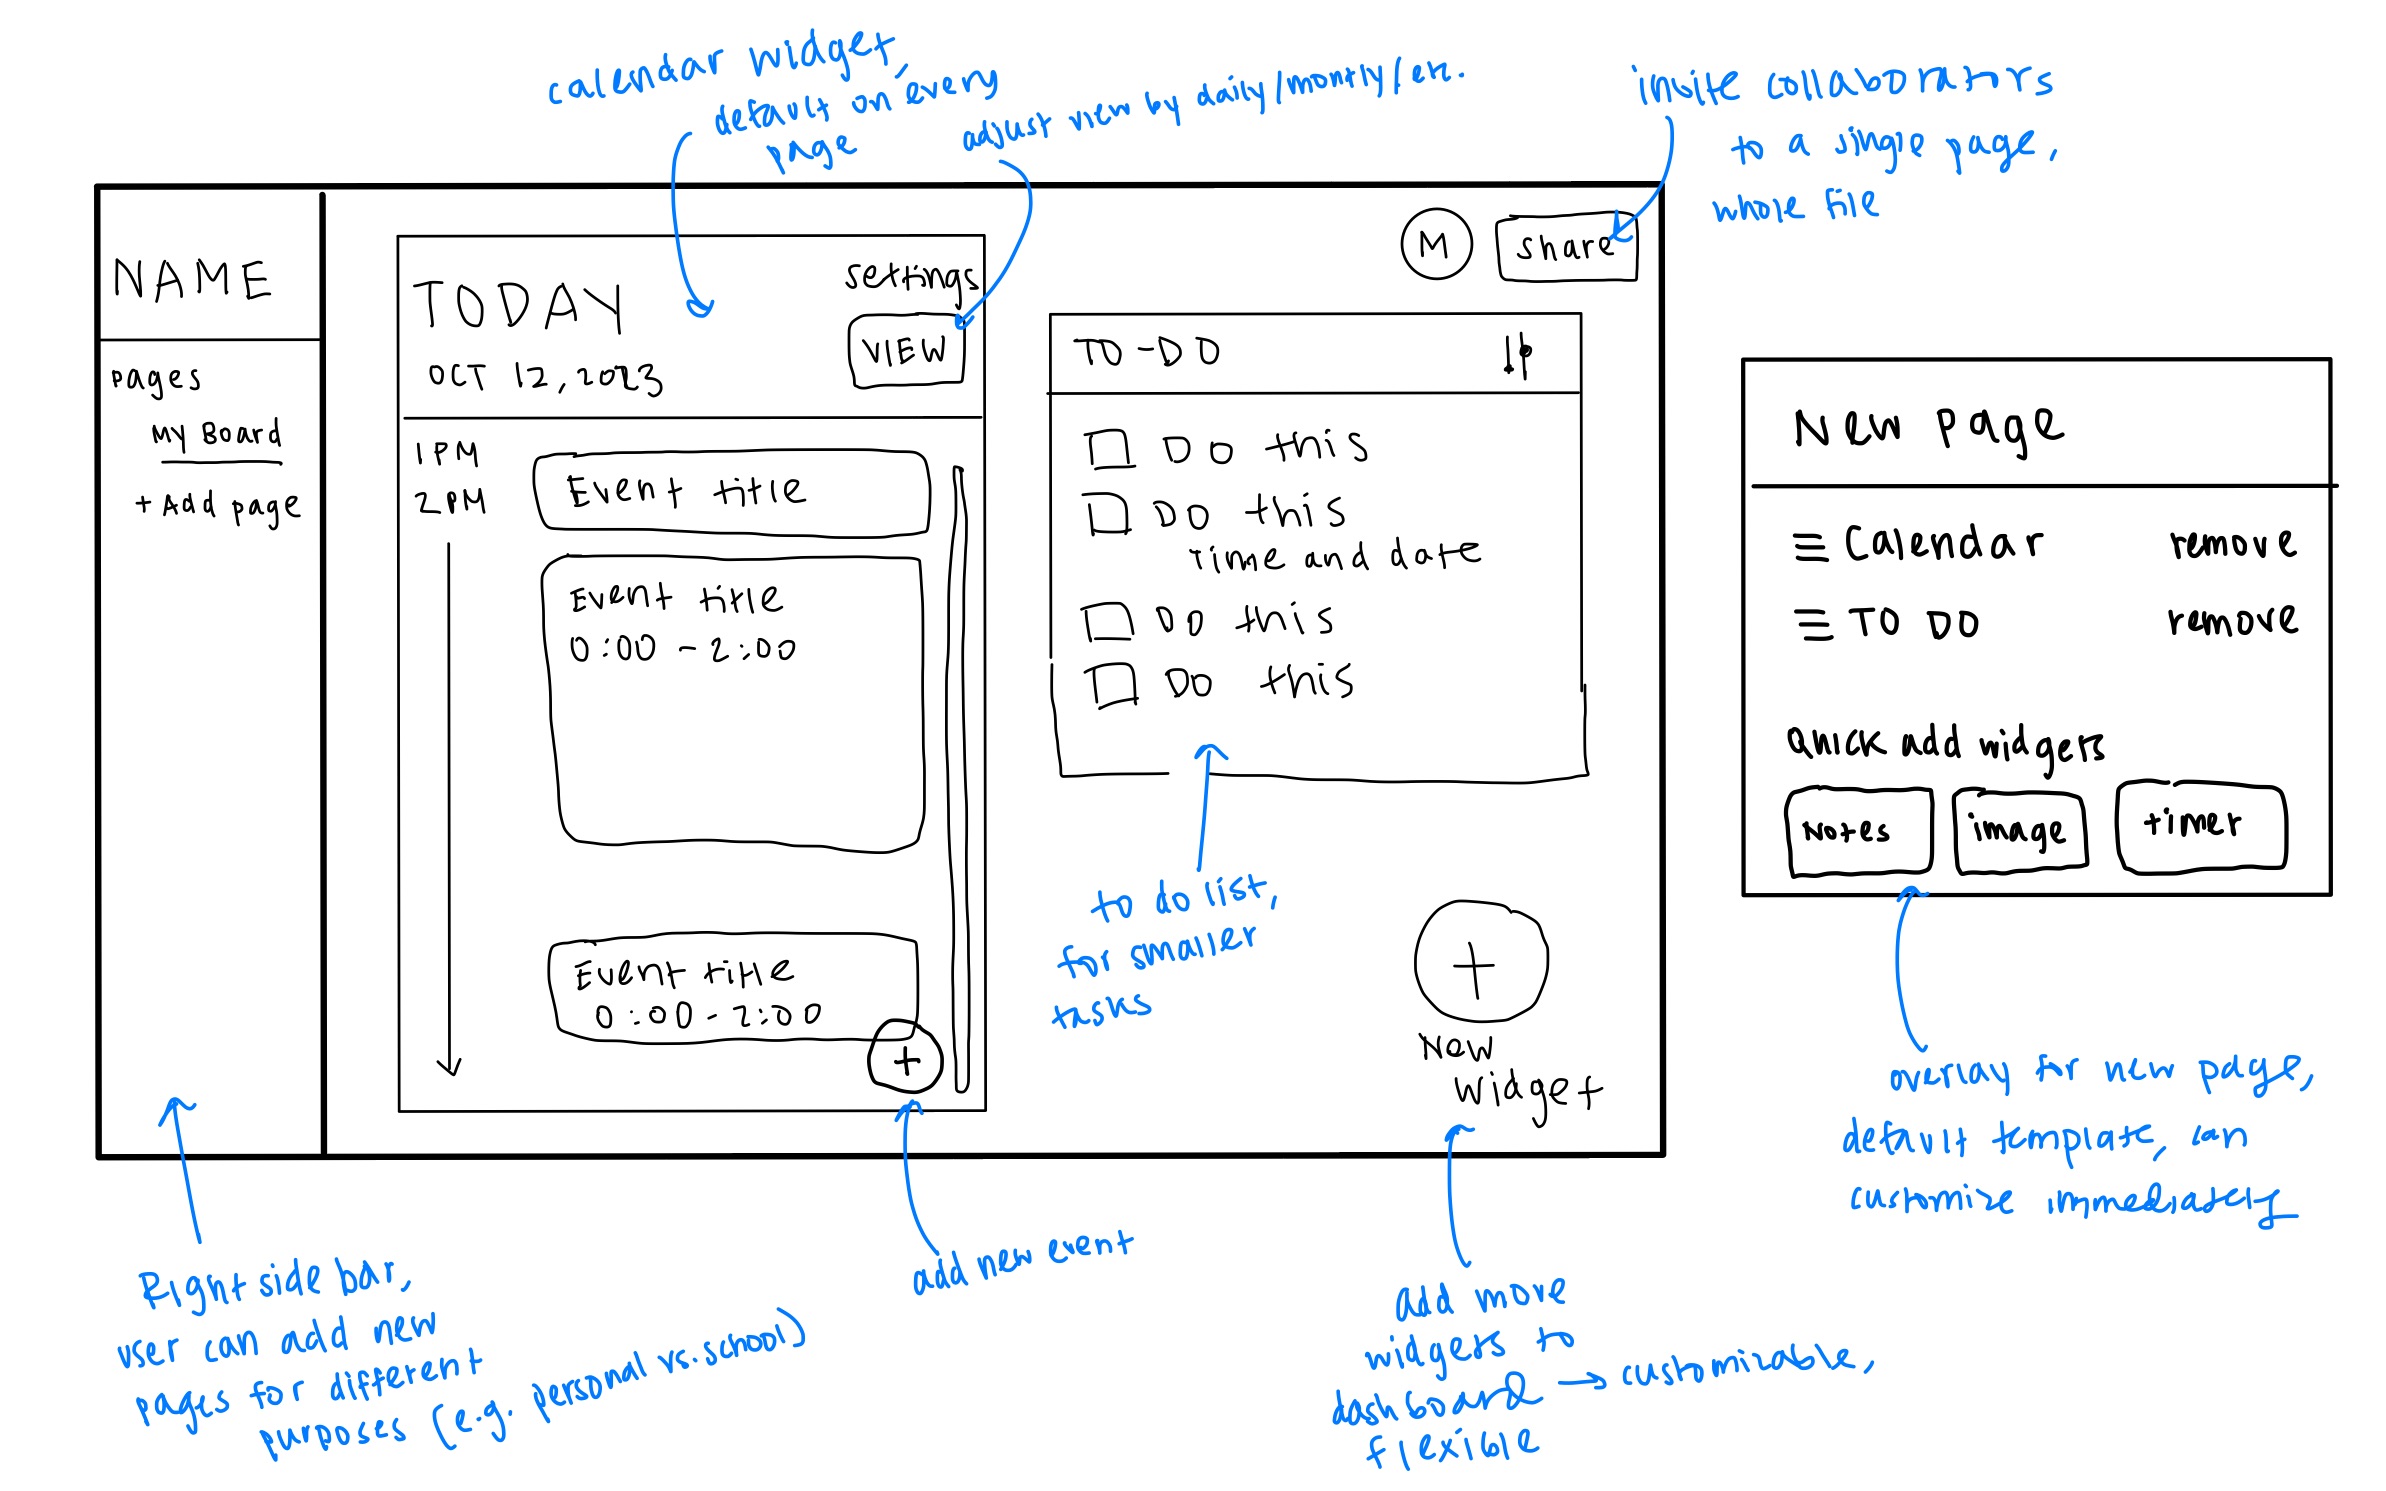 calendar widget,
default on every
page
adjust view by daily/montly/etc.
invite collaborators
to a single page,
whole file
NAME
pages
My Board
+ Add page
TODAY
OCT 12, 2023
settings
VIEW
1 PM
2 PM
Event title
Event title
0:00 - 2:00
Event title
0:00 - 2:00
+
M
share
TO-DO
DO this
DO this
time and date
DO this
DO this
+
New
widget
New page
Calendar remove
TO DO remove
Quick add widgets
Notes image timer
to do list,
for smaller
tasks
overlay for new page,
default template, can
customize immediately
Right side bar,
user can add new
pages for different
purposes (e.g. personal vs. school)
add new event
add more
widgets to
dashboard → customizable,
flexible